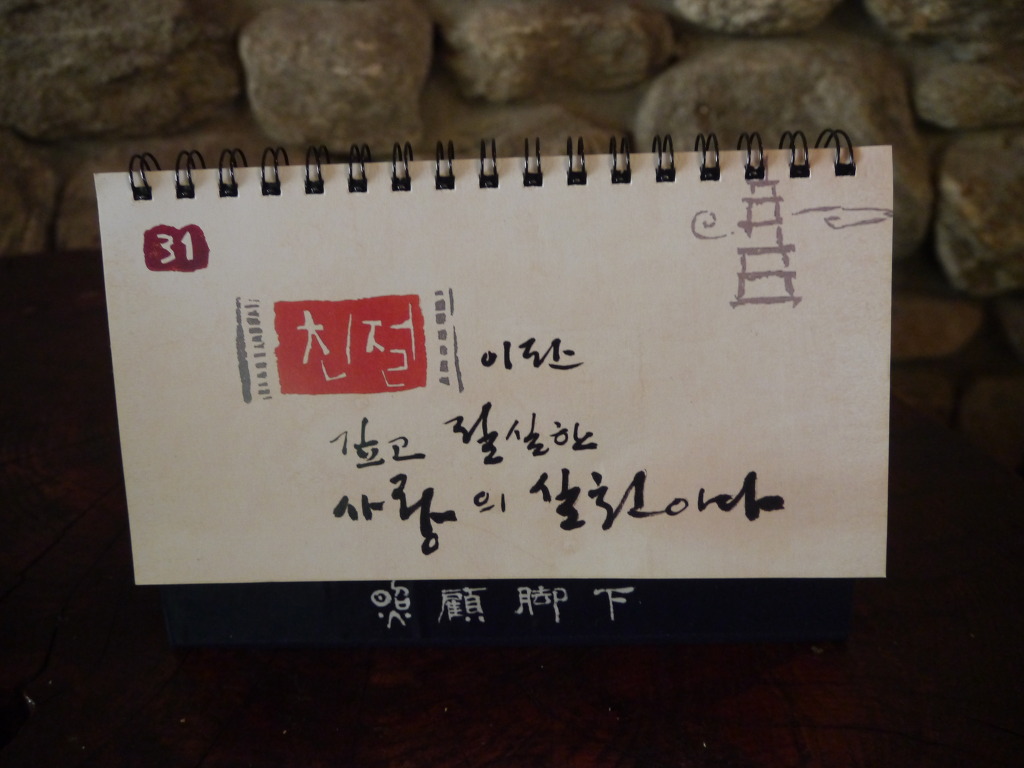 31
친절 이란
깊고 절실한
사랑의 실천이다
照顧脚下